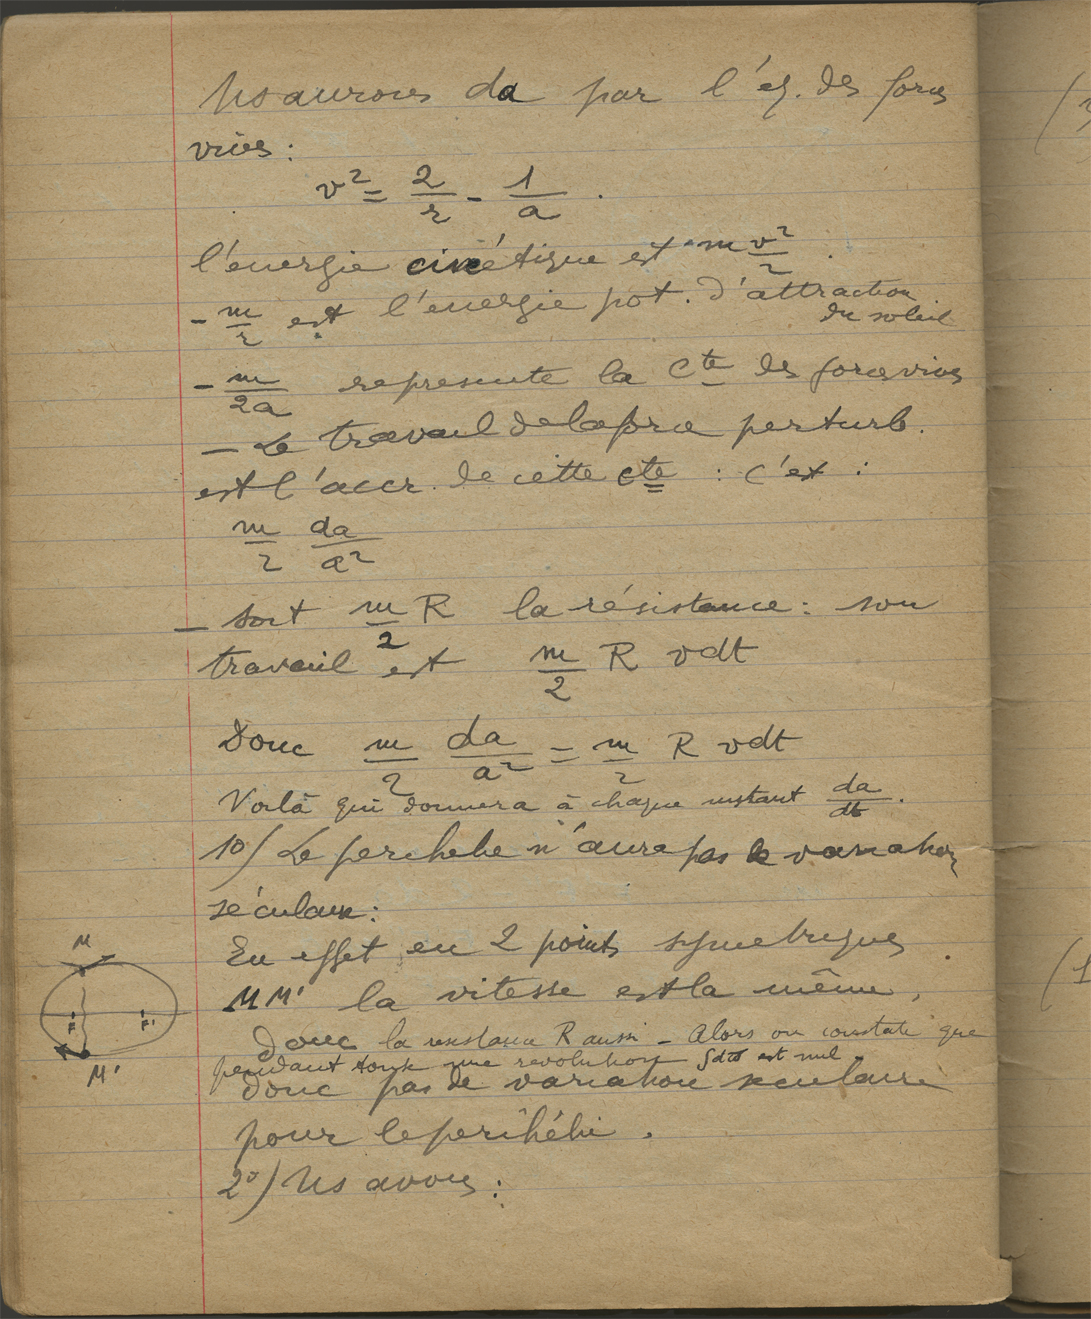 Ns aurons da par l'éq. des forces
vives :
v² = 2/r - 1/a .
l'énergie cinétique est m v²/2 .
- m/r est l'énergie pot. d'attraction
du soleil
- m/2a represente la Cte des forces vives
- Le travail de la force perturb.
est l'accr. de cette cte : c'est :
m/2 da/a²
- Soit m/2 R la résistance : son
travail est m/2 R vdt
Donc m/2 da/a² = m/2 R vdt
Voilà qui donnera à chaque instant da/dt .
1º) Le perihelie n'aura pas de variation
séculaire :
En effet en 2 points symetriques
M M' la vitesse est la même,
donc la resistance R aussi - Alors on constate que
pendant toute une revolution ∫dϖ est nul.
donc pas de variation seculaire
pour le périhélie .
2º) Ns avons :
M
F F'
M'
(1